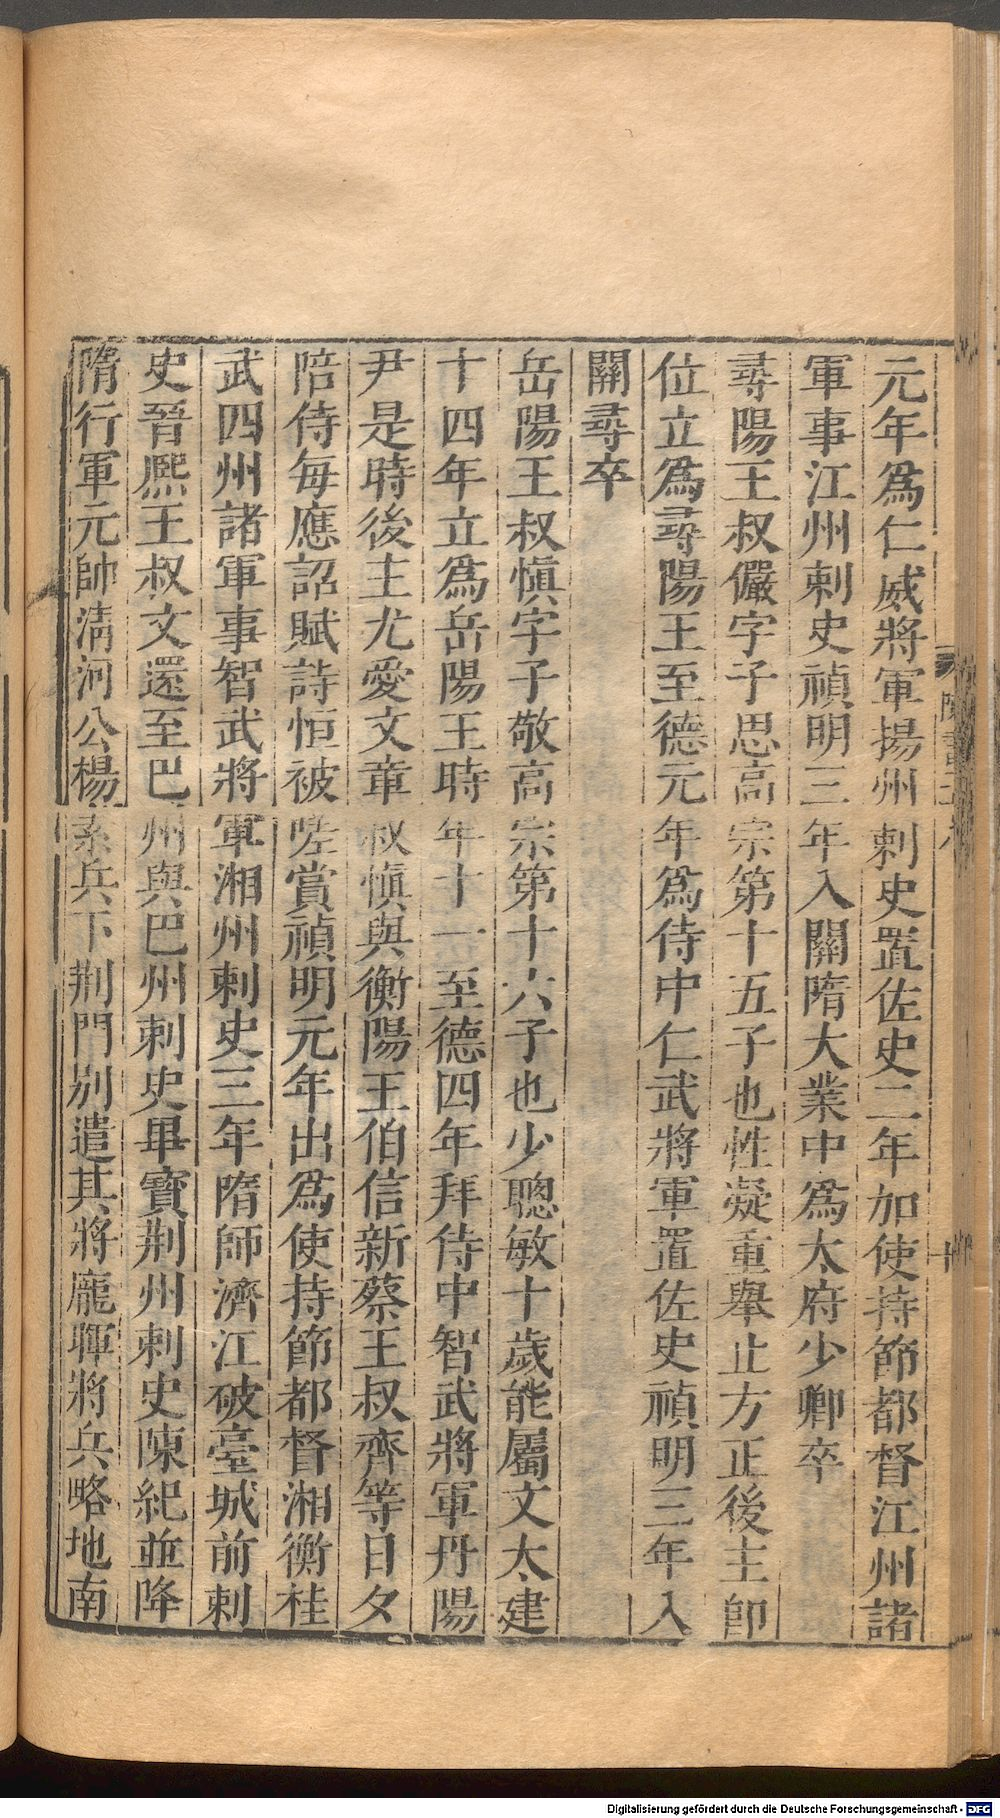 元年爲仁威將軍揚州刺史置佐史二年加使持節都督江州諸
軍事江州刺史禎明三年入關隋大業中爲太府少卿卒
尋陽王叔儼字子思高宗第十五子也性凝重舉止方正後主卽
位立爲尋陽王至德元年爲侍中仁武將軍置佐史禎明三年入
關尋卒
岳陽王叔慎字子敬高宗第十六子也少聰敏十歲能屬文太建
十四年立爲岳陽王時年十一至德四年拜侍中智武將軍丹陽
尹是時後主尤愛文章叔慎與衡陽王伯信新蔡王叔齊等日夕
陪侍每應詔賦詩恒被嗟賞禎明元年出爲使持節都督湘衡桂
武四州諸軍事智武將軍湘州刺史三年隋師濟江破臺城前刺
史晉熙王叔文還至巴州與巴州刺史畢寶荆州刺史陳紀並降
隋行軍元帥淸河公楊素兵下荆門别遣其將龐暉將兵略地南
Digitalisierung gefördert durch die Deutsche Forschungsgemeinschaft - DFG